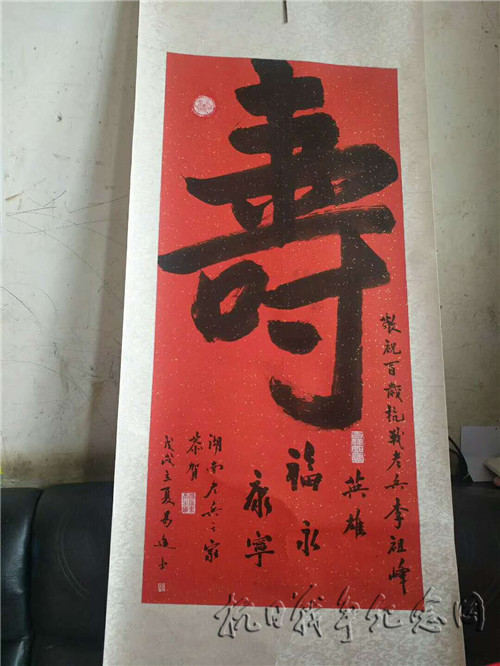 寿
敬祝百岁抗战老兵李祖峰
英雄
福永
康宁
湖南老兵之家
恭贺
戊戌立夏易连书
抗日战争纪念网